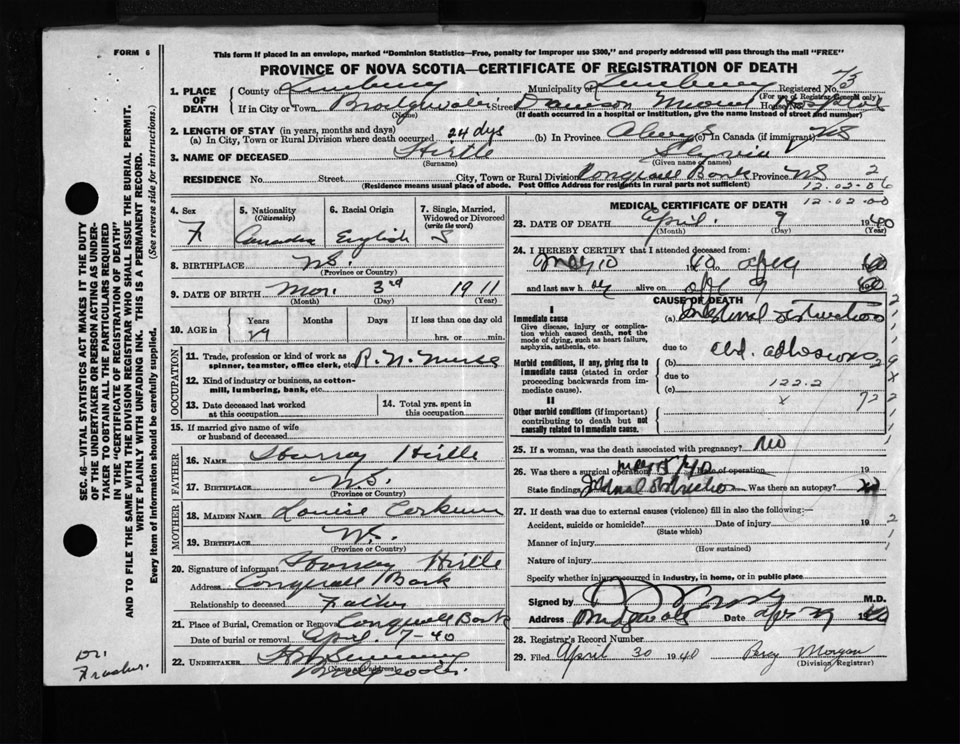 FORM 6
This form if placed in an envelope, marked "Dominion Statistics—Free, penalty for improper use $300," and properly addressed will pass through the mail "FREE"
PROVINCE OF NOVA SCOTIA—CERTIFICATE OF REGISTRATION OF DEATH
SEC. 46—VITAL STATISTICS ACT MAKES IT THE DUTY
OF THE UNDERTAKER OR PERSON ACTING AS UNDER-
TAKER TO OBTAIN ALL THE PARTICULARS REQUIRED
IN THE "CERTIFICATE OF REGISTRATION OF DEATH"
AND TO FILE THE SAME WITH THE DIVISION REGISTRAR WHO SHALL ISSUE THE BURIAL PERMIT.
WRITE PLAINLY WITH UNFADING INK. THIS IS A PERMANENT RECORD.
Every item of information should be carefully supplied. (See reverse side for instructions.)
1. PLACE OF DEATH County of Lunenburg Municipality of Lunenburg Registered No. 73
(For use of Registrar General only)
If in City or Town Bridgewater Street Dawson Memorial Hospital House No.
(Name) (If death occurred in a hospital or institution, give the name instead of street and number)
2. LENGTH OF STAY (in years, months and days)
(a) In City, Town or Rural Division where death occurred 24 dys (b) In Province Always (c) In Canada (if immigrant) NS
3. NAME OF DECEASED Hirtle Slyvia
(Surname) (Given name or names)
RESIDENCE No. Street City, Town or Rural Division Conquerall Bank Province NS 2
(Residence means usual place of abode. Post Office Address for residents in rural parts not sufficient) 12.02.06
12.02.00
4. Sex F
5. Nationality (Citizenship) Canadia
6. Racial Origin English
7. Single, Married, Widowed or Divorced (write the word) S
8. BIRTHPLACE NS.
(Province or Country)
9. DATE OF BIRTH Mar. 3rd 1911
(Month) (Day) (Year)
10. AGE in Years 29 Months Days If less than one day old
hrs. or min.
OCCUPATION
11. Trade, profession or kind of work as
spinner, teamster, office clerk, etc. R. N. Nurse
12. Kind of industry or business, as cotton-
mill, lumbering, bank, etc.
13. Date deceased last worked
at this occupation
14. Total yrs. spent in
this occupation
15. If married give name of wife
or husband of deceased
FATHER
16. NAME Hirtle
17. BIRTHPLACE N.S.
(Province or Country)
MOTHER
18. MAIDEN NAME Louise Corkum
19. BIRTHPLACE N.S.
(Province or Country)
20. Signature of informant Hirtle
Address Conquerall Bank
Relationship to deceased Father
21. Place of Burial, Cremation or Removal Conquerall Bank
Date of burial or removal April 7-40
22. UNDERTAKER
(Name and address) Bridgewater.
Dr.
MEDICAL CERTIFICATE OF DEATH
23. DATE OF DEATH April 9 1940
(Month) (Day) (Year)
24. I HEREBY CERTIFY that I attended deceased from:
and last saw h er alive on apr 9
CAUSE OF DEATH
I
Immediate cause (a) Intestinal obstruction
Give disease, injury or complica-
tion which caused death, not the
mode of dying, such as heart failure,
asphyxia, asthenia, etc.
due to abd. adhesions
Morbid conditions, if any, giving rise to
immediate cause (stated in order
proceeding backwards from im-
mediate cause).
(b)
due to
(c) 122.2
x
II
Other morbid conditions (if important)
contributing to death but not
causally related to immediate cause.
25. If a woman, was the death associated with pregnancy? No
26. Was there a surgical operation? Date of operation 19
State findings Intestinal obstruction Was there an autopsy? no
27. If death was due to external causes (violence) fill in also the following:—
Accident, suicide or homicide? Date of injury 19
(State which)
Manner of injury
(How sustained)
Nature of injury
Specify whether injury occurred in industry, in home, or in public place
Signed by M.D.
Address Bridgewater Date apr 29 1940
28. Registrar's Record Number
29. Filed April 30 1940 Percy Morgan
(Division Registrar)